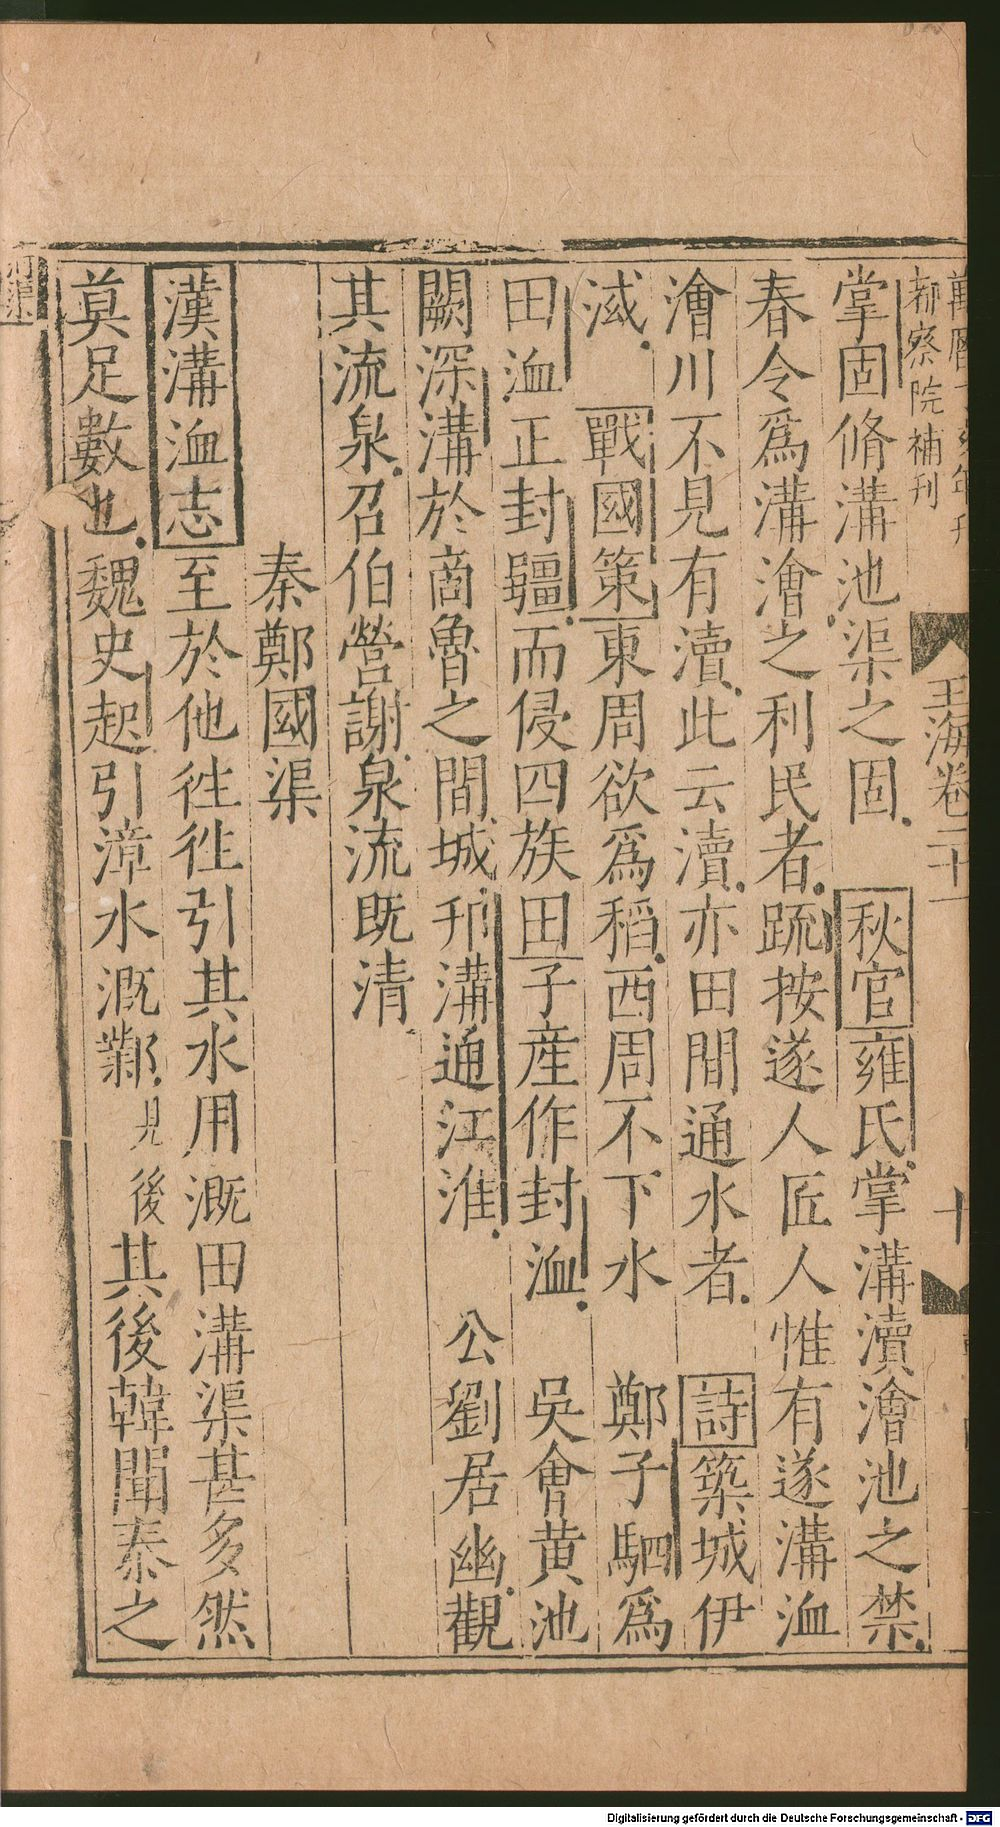 都察院補刊
玉海卷二十一
十
掌固脩溝池渠之固秋官雍氏掌溝瀆澮池之禁
春令爲溝澮之利民者䟽按遂人匠人惟有遂溝洫
澮川不見有瀆此云瀆亦田間通水者 詩築城伊
淢 戰國策東周欲爲稻西周不下水 鄭子駟爲
田洫正封疆而侵四族田子產作封洫 吳會黃池
闕深溝於商魯之間城邗溝通江淮 公劉居幽觀
其流泉召伯營謝泉流旣清
秦鄭國渠
漢溝洫志至於他徃徃引其水用溉田溝渠甚多然
莫足數也魏史起引漳水溉鄴見後其後韓聞秦之
Digitalisierung gefördert durch die Deutsche Forschungsgemeinschaft - DFG